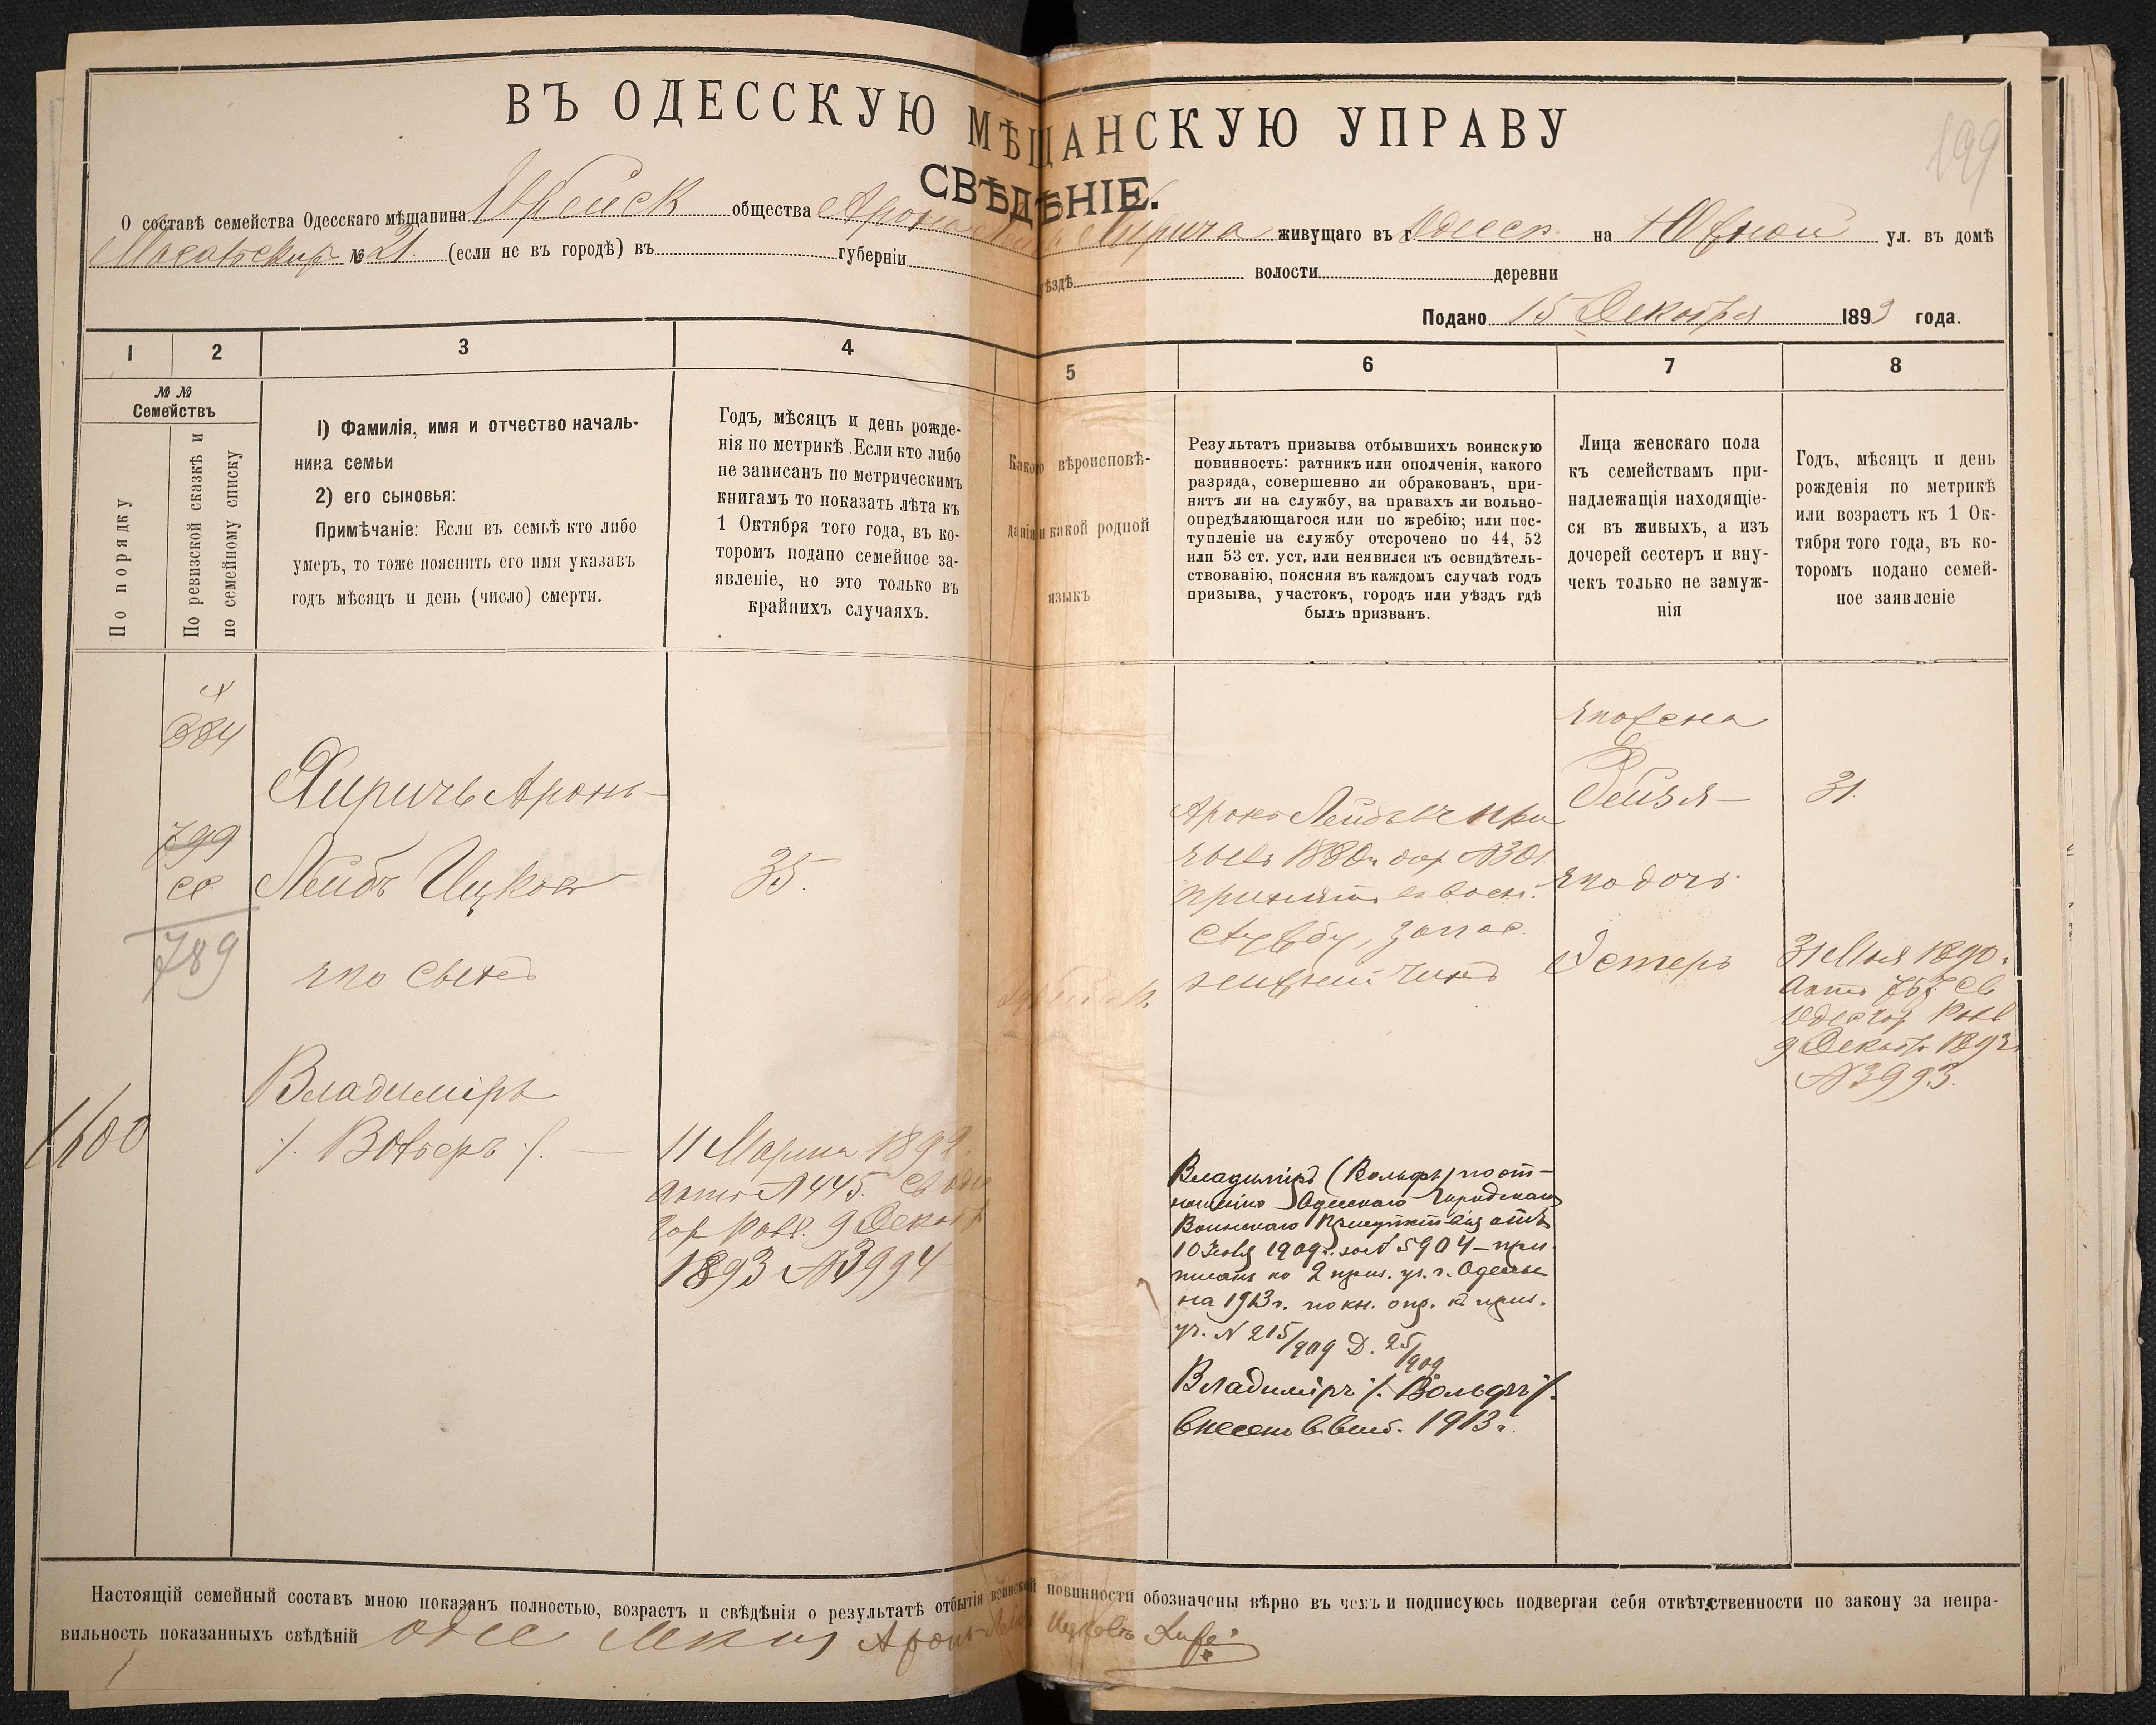 199
ВЪ ОДЕССКУЮ МѢЩАНСКУЮ УПРАВУ
СВѢДѢНІЕ.
О составѣ семейства Одесскаго мѣщанина Еврейск общества Арона Лейба Хирича живущаго въ г. Одесс. на Южной ул. въ домѣ
№ 21. (если не въ городѣ) въ губерніи уѣздѣ волости деревни
Подано 15 Декабря 1893 года.
1 2 3 4 5 6 7 8
№ № Семействъ
По порядку
По ревизской сказкѣ и
по семейному списку
1) Фамилія, имя и отчество началь-
ника семьи
2) его сыновья:
Примѣчаніе: Если въ семьѣ кто либо
умеръ, то тоже пояснить его имя указавъ
годъ мѣсяцъ и день (число) смерти.
Годъ, мѣсяцъ и день рожде-
нія по метрикѣ. Если кто либо
не записанъ по метрическимъ
книгамъ то показать лѣта къ
1 Октября того года, въ ко-
торомъ подано семейное за-
явленіе, но это только въ
крайнихъ случаяхъ.
Какого вѣроисповѣ-
данія и какой родной
языкъ
Результатъ призыва отбывшихъ воинскую
повинность: ратникъ или ополченія, какого
разряда, совершенно ли обракованъ, при-
нятъ ли на службу, на правахъ ли вольно-
опредѣляющагося или по жребію; или пос-
тупленіе на службу отсрочено по 44, 52
или 53 ст. уст, или неявился къ освидѣтель-
ствованію, поясняя въ каждомъ случаѣ годъ
призыва, участокъ, городъ или уѣздъ гдѣ
былъ призванъ.
Лица женскаго пола
къ семействамъ при-
надлежащія находящіе-
ся въ живыхъ, а изъ
дочерей сестеръ и вну-
чекъ только не замуж-
нія
Годъ, мѣсяцъ и день
рожденія по метрикѣ
или возрастъ къ 1 Ок-
тября того года, въ ко-
торомъ подано семей-
ное заявленіе
884
799
789
1600
Хиричъ Аронъ-
Лейбъ Ицков
его сынъ
Владиміръ
35.
11 Марта 1892.
актъ №445. Св Одес
гор Равв. 9 Декабр
1893 №3994
Аронъ Лейбъ въ при
зывъ 1880г
принятъ въ воен.
службу, запас.
нижній чинъ
Владиміръ (Вольфъ) по от-
ношенію Одесскаго Городскаго
Воинскаго Присутствія отъ
10 1909г. за № 5904 — при-
писанъ ко 2 приз. уч. г. Одессы
на 1913г. по кн. опр. к приз.
уч. № 215/909 Д. 25/909
Владиміръ /. Вольфъ /.
внесенъ в 1913г.
его жена
Рейзя
31.
его дочь
Эстеръ
31 Мая 1890.
актъ 757 Св
Одес гор Равв
9 Декабр 1893
№3993.
Настоящій семейный составъ мною показанъ полностью, возрастъ и свѣдѣнія о результатѣ отбытія воинской повинности обозначены вѣрно въ чемъ и подписуюсь подвергая себя отвѣтственности по закону за непра-
вильность показанныхъ свѣдѣній Одес Аронъ-Лейбъ Ицковъ